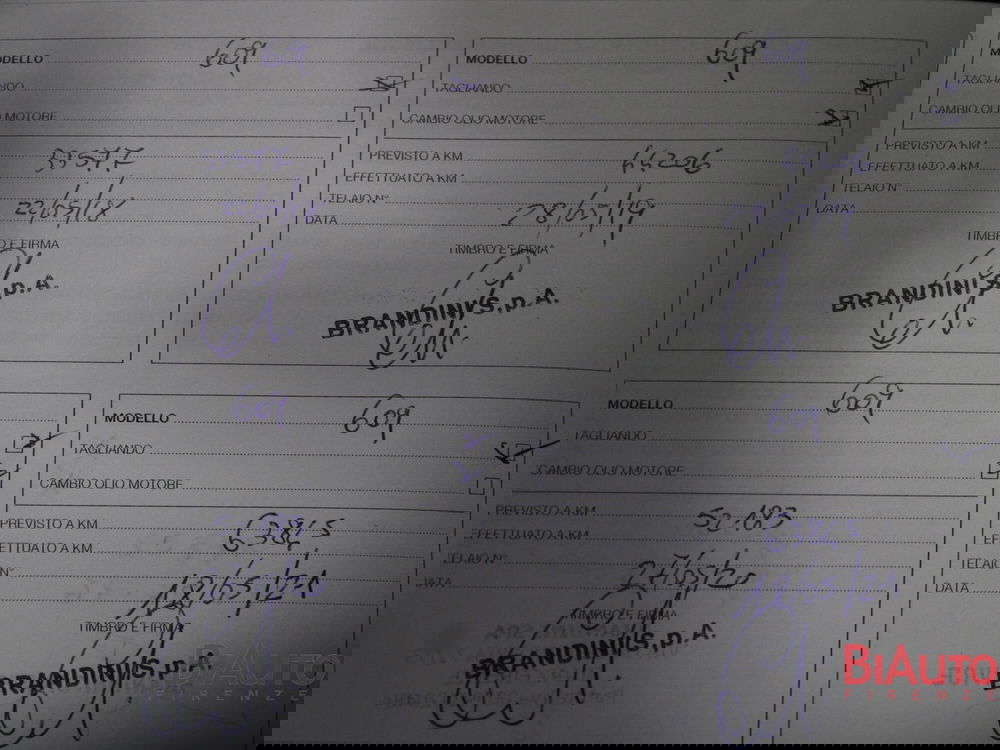 MODELLO 609
TAGLIANDO
CAMBIO OLIO MOTORE
33577
22/05/18
TIMBRO E FIRMA
S.p.A.
MODELLO 609
TAGLIANDO
CAMBIO OLIO MOTORE
PREVISTO A KM
EFFETTUATO A KM 44206
TELAIO N°
DATA 28/05/19
TIMBRO E FIRMA
BRANDINI S.p.A.
PREVISTO A KM
EFFETTUATO A KM
TELAIO N°
DATA
BRANDINI S
MODELLO 609
TAGLIANDO
CAMBIO OLIO MOTORE
PREVISTO A KM
EFFETTUATO A KM 63825
TELAIO N°
DATA 18/05/21
TIMBRO E FIRMA
BRANDINI S.p.A.
MODELLO 609
TAGLIANDO
CAMBIO OLIO MOTORE
PREVISTO A KM
EFFETTUATO A KM 50193
TELAIO N°
DATA 27/05/20
TIMBRO E FIRMA
BRANDINI S.p.A.
DATA
BiAuto
FIRENZE
BiAuto
FIRENZE